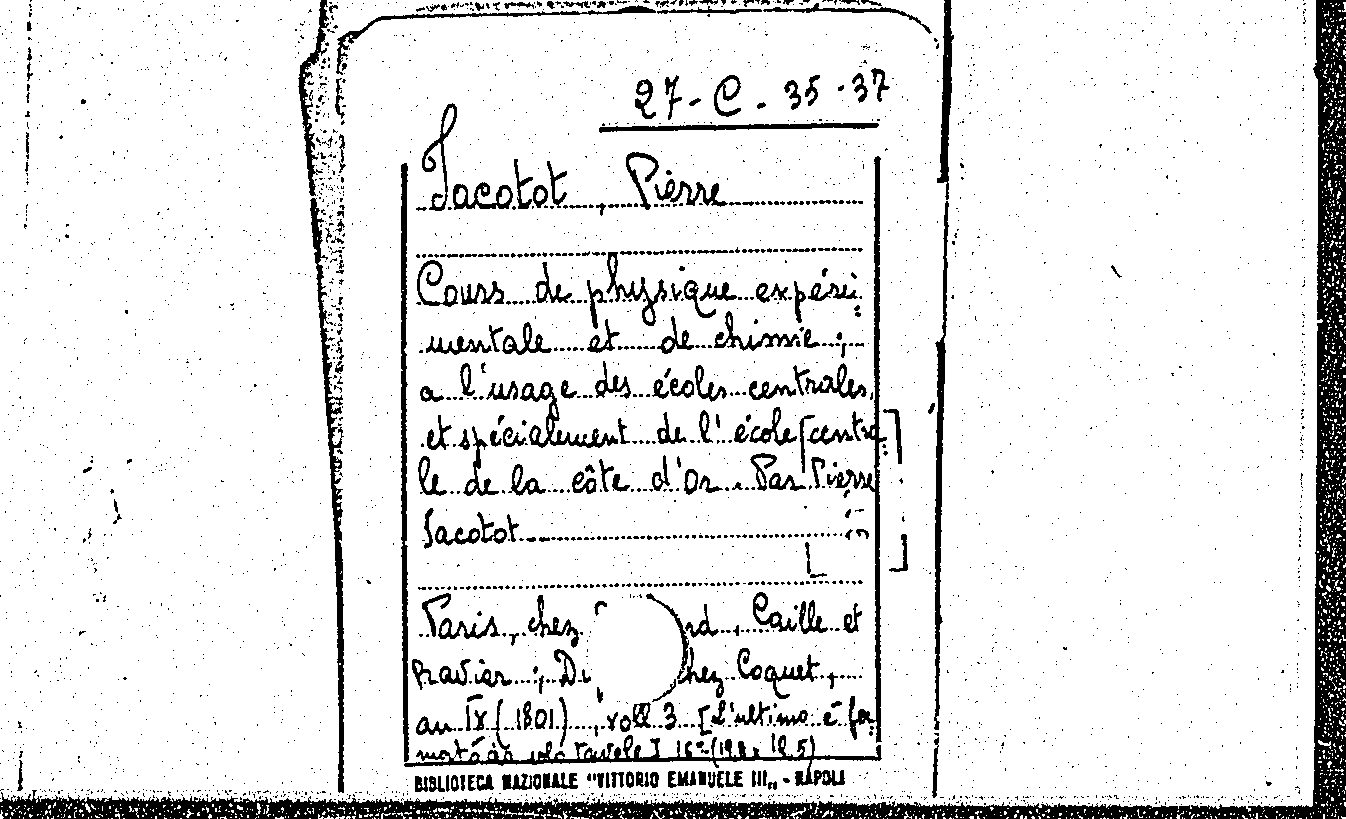 27-C-35-37
Jacotot, Pierre
Cours de physique expéri=
mentale et de chimie;
a l'usage des écoles centrales,
et spécialement de l'école [centra=
le de la côte d'Or. Par Pierre
Jacotot
Paris, chez rd, Caille et
Ravier; Di hez Coquet,
an IX (1801), voll 3 [L'ultimo è for=
mato da tavole]
BIBLIOTECA NAZIONALE "VITTORIO EMANUELE III„ - NAPOLI